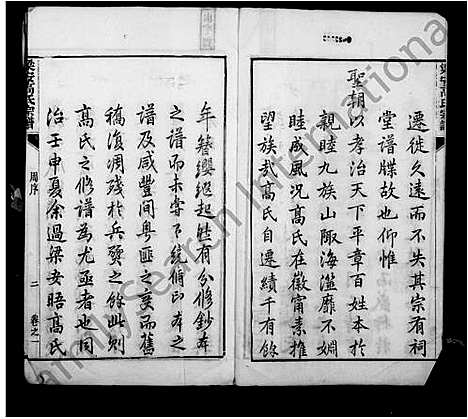 梁安高氏宗譜
遷徙久遠而不失其宗有祠
堂譜牒故也仰惟
聖朝以孝治天下平章百姓本於
親睦九族山陬海澨靡不婣
睦成風況高氏在徽甯素推
望族哉高氏自遷績千有餘
年簪纓繼起雖有分修鈔本
之譜而未嘗不統脩印本之
譜及咸豐間粵匪之變而舊
稿復凋殘於兵燹之餘此則
高氏之修譜為尤亟者也同
治壬申夏余過梁安晤高氏
梁安高氏宗譜
周序
二
卷之一
Family Search International